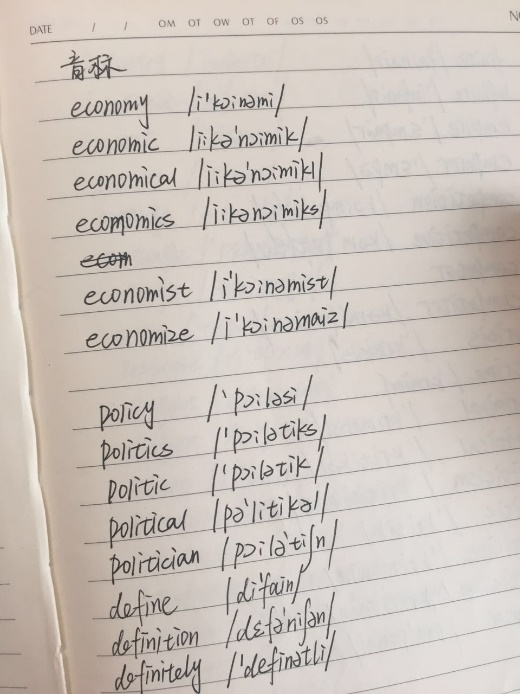 DATE / / OM OT OW OT OF OS OS
音标
economy /i'kɔinəmi/
economic /iikə'nɔimik/
economical /iikə'nɔimikl/
ecomomics /iikənɔimiks/
economist /i'kɔinəmist/
economize /i'kɔinəmaiz/
policy /'pɔiləsi/
politics /'pɔilətiks/
politic /'pɔilətik/
political /pə'litikəl/
politician /pɔilə'tiʃn/
define /di'fain/
definition /dɛfə'niʃən/
definitely /'definətli/